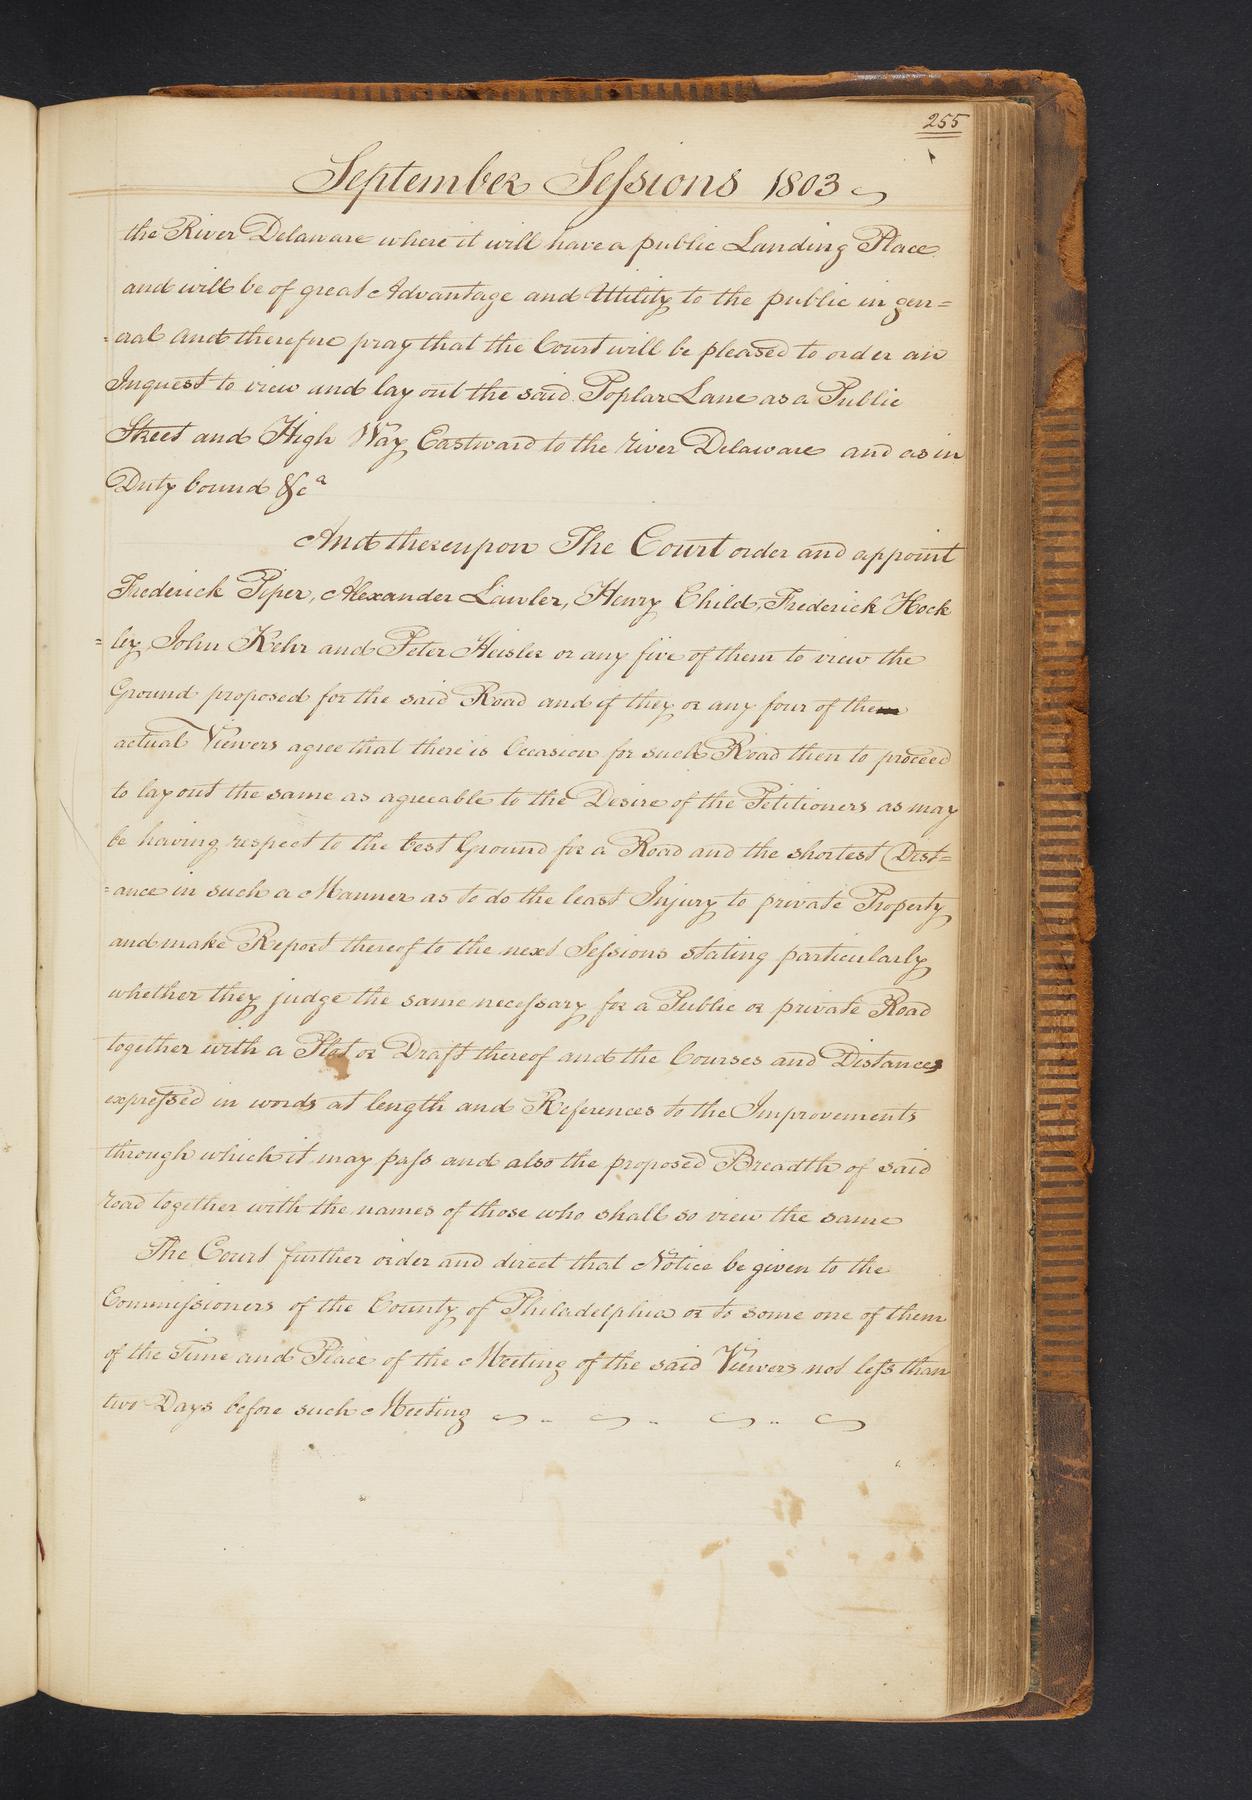 255
September Sessions 1803
the River Delaware where it will have a public Landing Place
and will be of great Advantage and Utility to the public in gen=
=eral and therefore pray that the Court will be pleased to order an
Inquest to view and lay out the said Poplar Lane as a Public
Street and High Way Eastward to the river Delaware and as in
Duty bound &cª
And thereupon The Court order and appoint
Frederick Piper, Alexander Lawler, Henry Child, Frederick Hock
=ley John Kehr and Peter Heisler or any five of them to view the
Ground proposed for the said Road and if they or any four of the
actual Viewers agree that there is Occasion for such Road then to proceed
to lay out the same as agreeable to the Desire of the Petitioners as may
be having respect to the best Ground for a Road and the shortest Dist=
=ance in such a Manner as to do the least Injury to private Property
and make Report thereof to the next Sessions stating particularly
whether they judge the same necessary for a Public or private Road
together with a Plot or Draft thereof and the Courses and Distances
expressed in words at length and References to the Improvements
through which it may pass and also the proposed Breadth of said
road together with the names of those who shall so view the same
The Court further order and direct that Notice be given to the
Commissioners of the County of Philadelphia or to some one of them
of the Time and Place of the Meeting of the said Viewers not less than
two Days before such Meeting